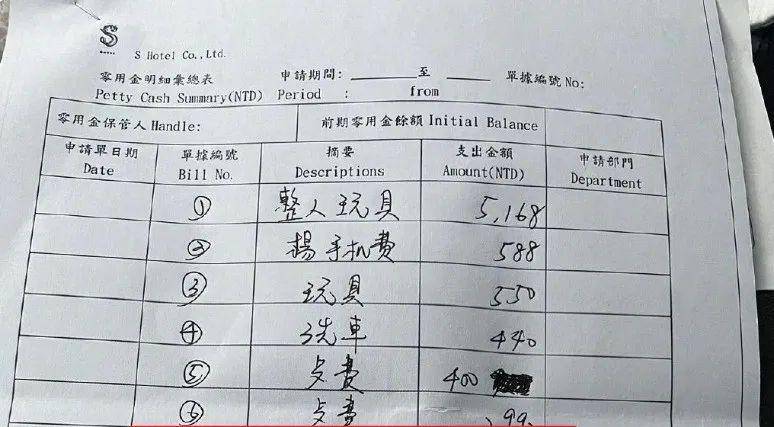 S
S Hotel Co., Ltd.
零用金明細彙總表 申請期間: 至 單據編號 No:
Petty Cash Summary(NTD) Period : from
零用金保管人 Handle: 前期零用金餘額 Initial Balance
申請單日期 單據編號 摘要 支出金額 申請部門
Date Bill No. Descriptions Amount(NTD) Department
① 整人玩具 5,168
② 楊手机費 588
③ 玩具 550
④ 洗車 440
⑤ 費 400
⑥ 費